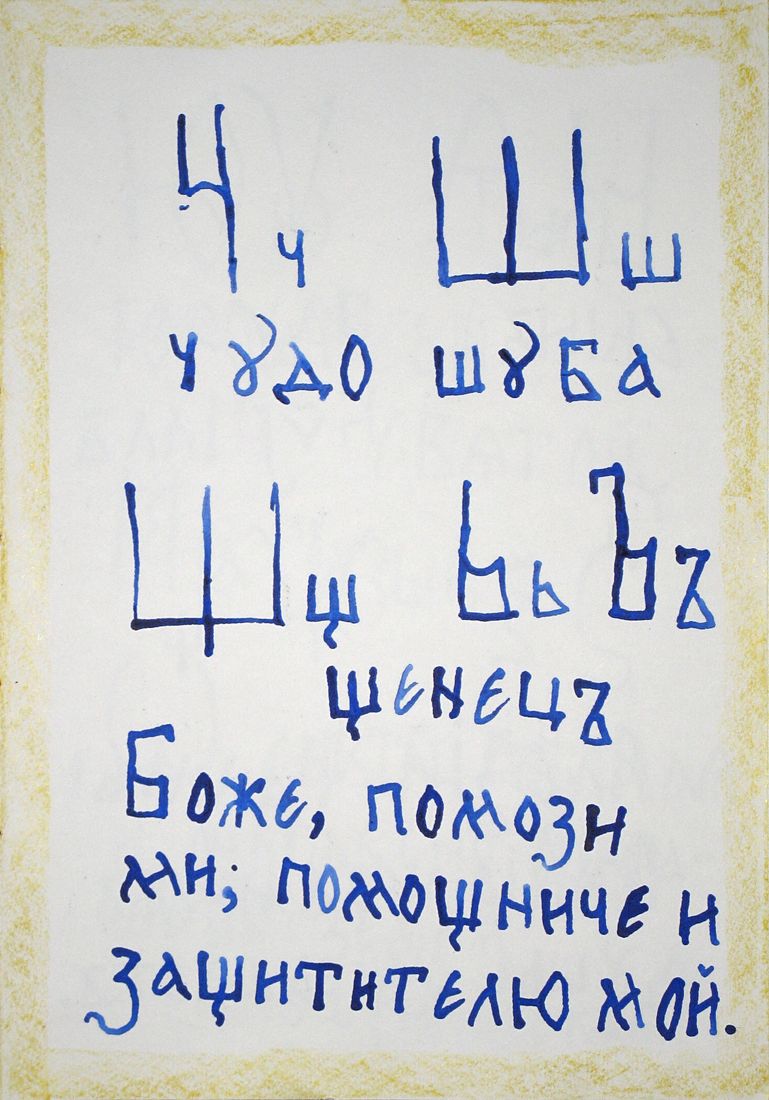 Ч ч Ш ш
чꙋдо шꙋба
Щ щ Ь ь Ъ ъ
щенецъ
Боже, помози
ми; помощниче и
защитителю мой.